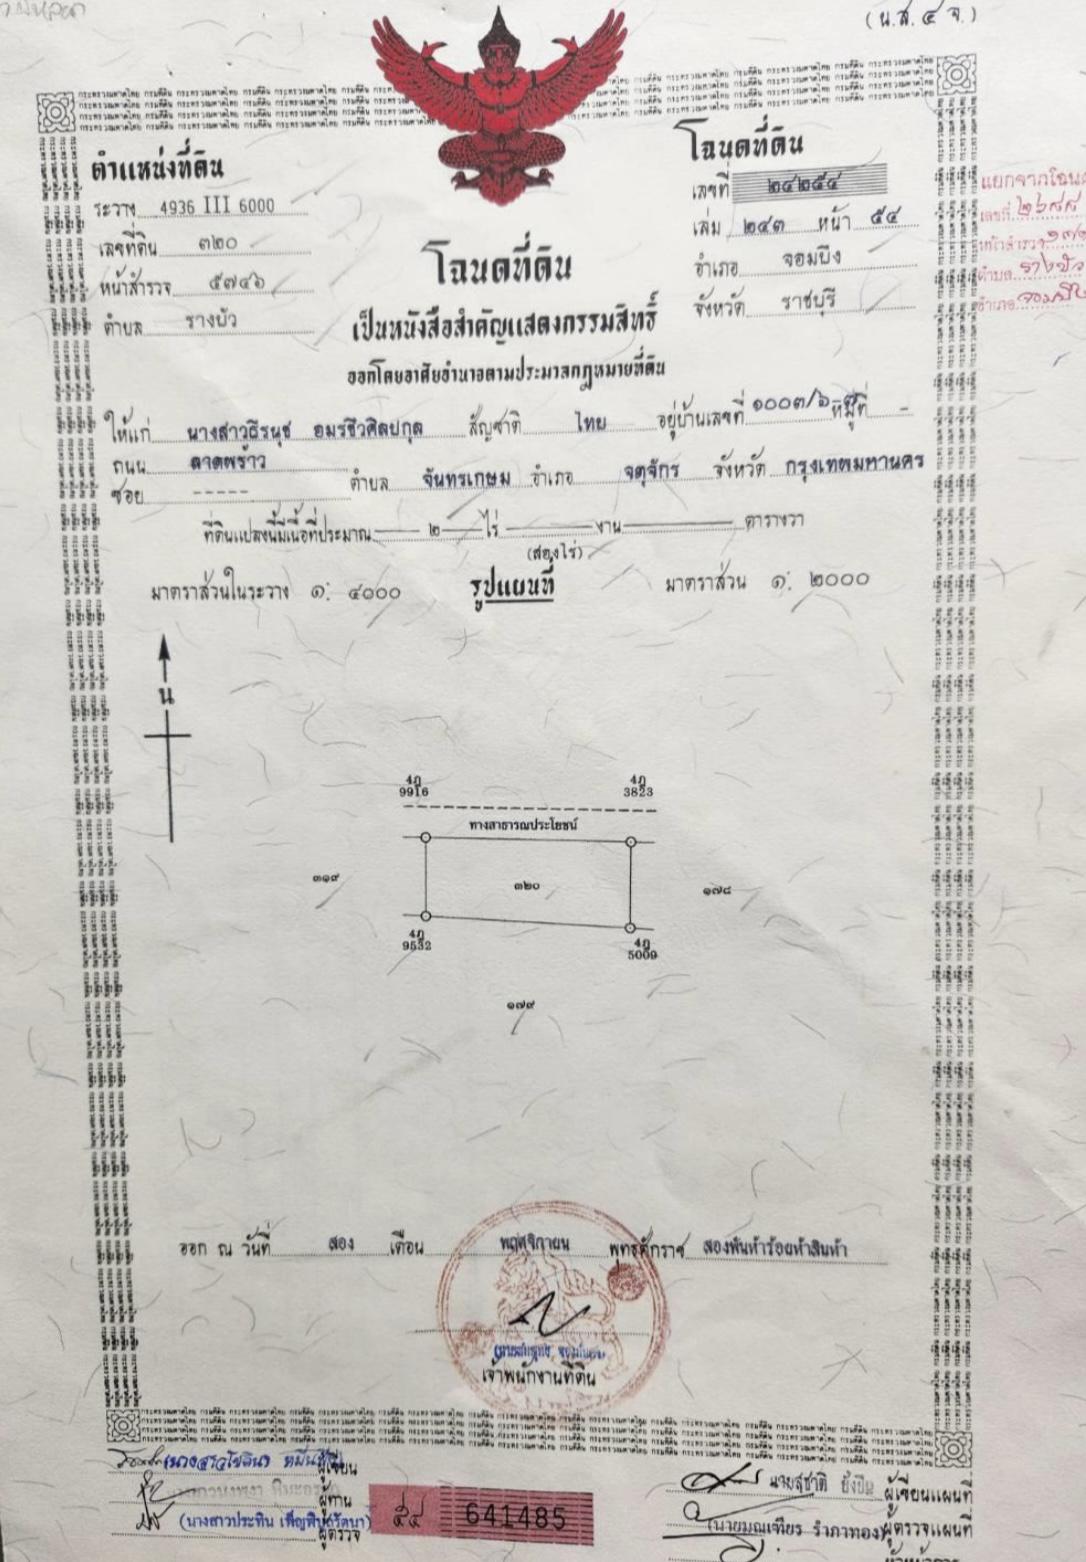 (น.ส.๔ จ.)
ตำแหน่งที่ดิน
ระวาง 4936 III 6000
เลขที่ดิน ๓๒๐
หน้าสำรวจ ๕๗๔๖
ตำบล รางบัว
โฉนดที่ดิน
เลขที่ ๒๔๒๕๔
เล่ม ๒๔๓ หน้า ๕๔
อำเภอ จอมบึง
จังหวัด ราชบุรี
แยกจากโฉนด
เลขที่ ๒๖๘๘
หน้าสำรวจ
ตำบล รางบัว
อำเภอ จอมบึง
โฉนดที่ดิน
เป็นหนังสือสำคัญแสดงกรรมสิทธิ์
ออกโดยอาศัยอำนาจตามประมวลกฎหมายที่ดิน
ให้แก่ นางสาวธีรนุช อมรชีวศิลปกุล สัญชาติ ไทย อยู่บ้านเลขที่ ๑๐๐๓/๖ หมู่ที่ -
ถนน ลาดพร้าว
ซอย ----- ตำบล จันทรเกษม อำเภอ จตุจักร จังหวัด กรุงเทพมหานคร
ที่ดินแปลงนี้มีเนื้อที่ประมาณ ๒ ไร่ งาน ตารางวา
(สองไร่)
มาตราส่วนในระวาง ๑: ๔๐๐๐ รูปแผนที่ มาตราส่วน ๑: ๒๐๐๐
น
4ฎ 9916
4ฎ 3823
ทางสาธารณประโยชน์
๓๑๙ ๓๒๐ ๑๗๘
4ฎ 9532
4ฎ 5009
๑๗๙
ออก ณ วันที่ สอง เดือน พฤศจิกายน พุทธศักราช สองพันห้าร้อยห้าสิบห้า
เจ้าพนักงานที่ดิน
ผู้เขียน
ผู้ทาน
(นางสาวประทิน เพ็ญพิบูลรัตนา) ผู้ตรวจ
๕๔ 641485
นายสุชาติ ยั่งยืน ผู้เขียนแผนที่
(นายมณเฑียร รำภาทอง) ผู้ตรวจแผนที่